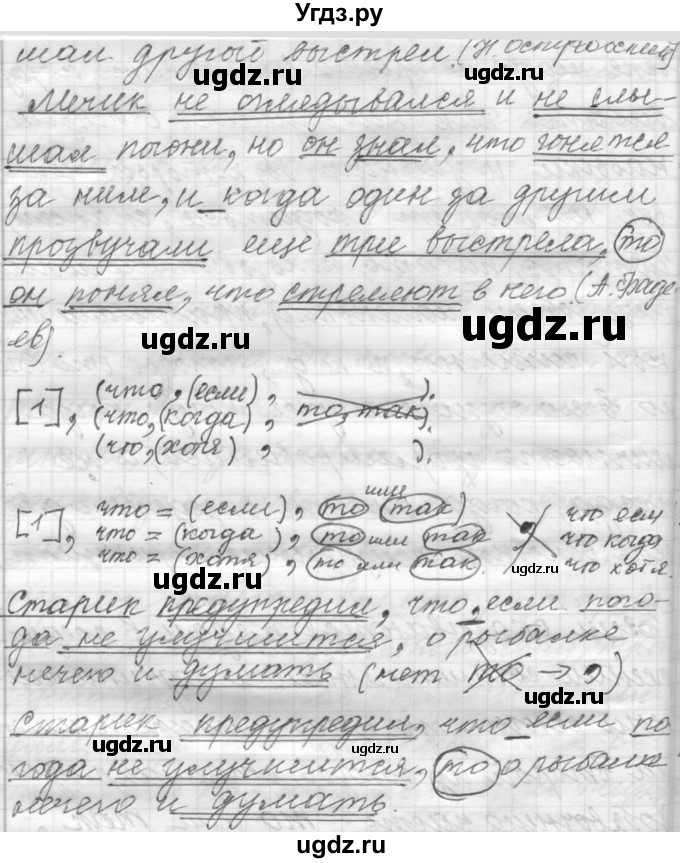 Угдз.ру
шал другой выстрел. (Н. Островский)
Мечик не оглядывался и не слы-
шал погони, но он знал, что гонятся
за ним, и когда один за другим
прозвучали еще три выстрела, то
он понял, что стреляют в него. (А. Фаде-
ев).
[1], (что, (если), ).
(что, (когда), то, так).
(что, (хотя), ).
[1], что = (если), то или так)
что = (когда), то или так
что = (хотя), то или так.
что если
что когда
что хотя.
Старик предупредил, что, если пого-
да не улучшится, о рыбалке
нечего и думать (нет то → ,)
Старик предупредил, что если по
года не улучшится, то о рыбалке
нечего и думать.
ugdz.ru
ugdz.ru
ugdz.ru
ugdz.ru
ugdz.ru
ugdz.ru
ugdz.ru
ugdz.ru
ugdz.ru
ugdz.ru
ugdz.ru
ugdz.ru